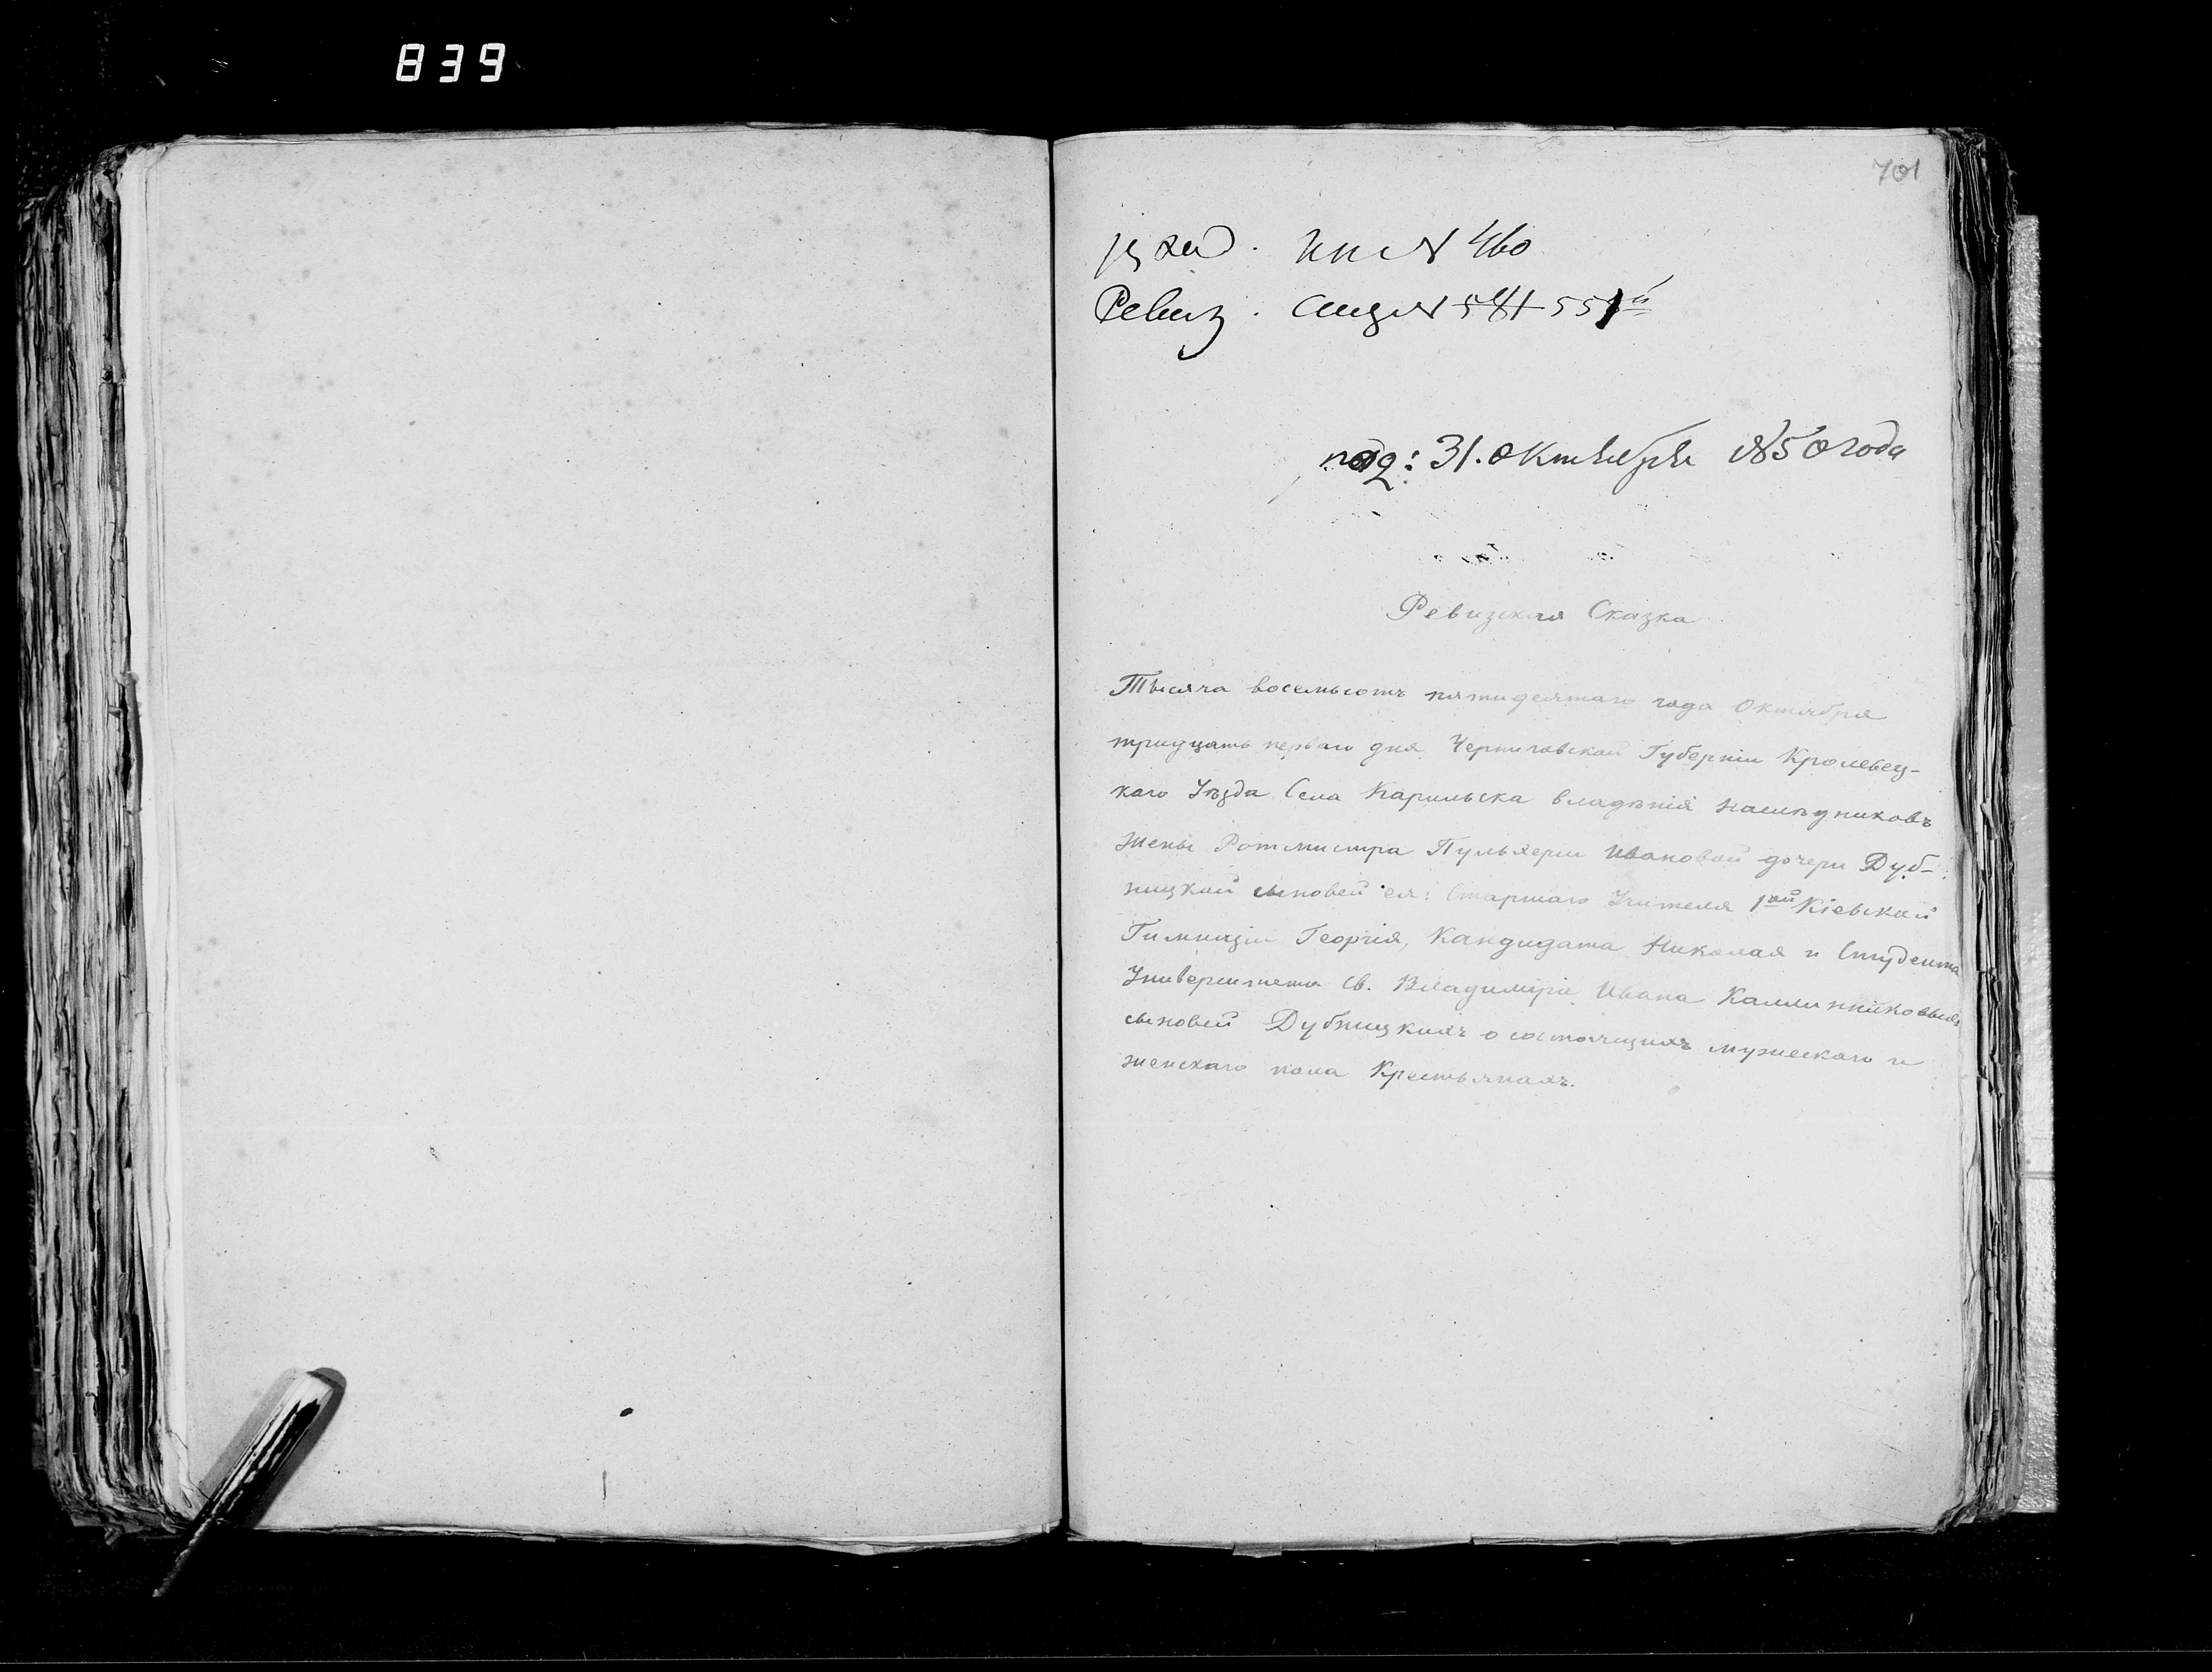 839
701
вход. кн. № 460
Ревиз. Сказ. № 581 551й
под: 31. Октября 1850 года
Ревизская Сказка
Тысяча восемьсотъ пятидесятаго года Октября
тридцать перваго дня Черниговской Губерніи Кролевец-
каго Уѣзда Села Карильска владѣнія наслѣдниковъ
жены Ротмистра Пульхеріи Ивановой дочери Дуб-
ницкой сыновей ея: Старшаго Учителя 1ой Кіевской
Гимназіи Георгія, Кандидата Николая и Студента
Университета Св. Владиміра Ивана Каллинниковыхъ
сыновей Дубницкихъ о состоящихъ мужескаго и
женскаго пола Крестьянахъ.